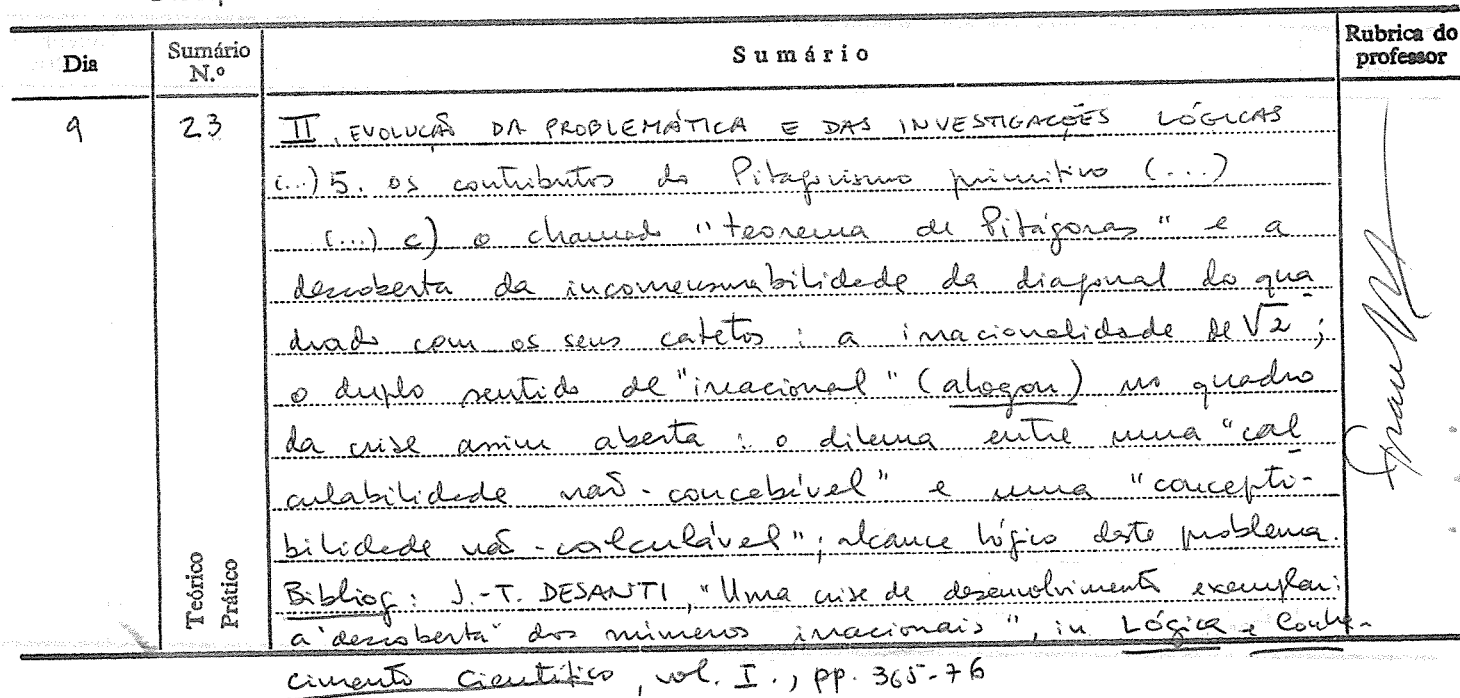 Dia Sumário N.º Sumário Rubrica do professor
9 23 II. EVOLUÇÃO DA PROBLEMÁTICA E DAS INVESTIGAÇÕES LÓGICAS
(...) 5. os contributos do Pitagorismo primitivo (...)
(...) c) o chamado "teorema de Pitágoras" e a
descoberta da incomensurabilidade da diagonal do qua
drado com os seus catetos : a irracionalidade de √2 ;
o duplo sentido de "irracional" (alogon) no quadro
da crise assim aberta : o dilema entre uma "cal
culabilidade não-concebível" e uma "concepti-
bilidade não-calculável"; alcance lógico deste problema.
Teórico
Prático
Bibliog: J.-T. DESANTI, "Uma crise de desenvolvimento exemplar:
a 'descoberta' dos números irracionais", in Lógica e Conhe-
cimento Científico, vol. I., pp. 365-76